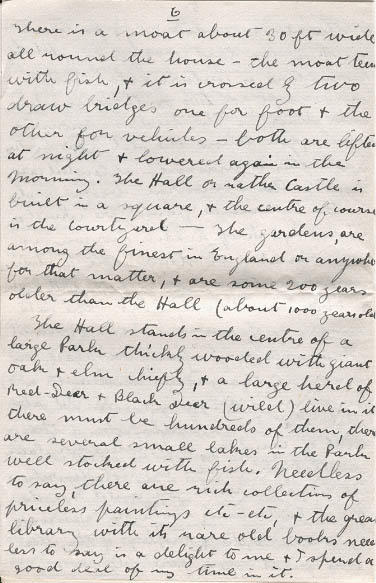 6
There is a moat about 30 ft wide
all round the house - the moat teem
with fish, & it is crossed by two
draw bridges one for foot & the
other for vehicles - both are lifted
at night & lowered again in the
morning. The Hall or rather Castle is
built in a square, & the centre of course
is the courtyard — The gardens, are
among the finest in England or anywhe
for that matter, & are some 200 years
older than the Hall (about 1000 years old
The Hall stands in the centre of a
large Park thickly wooded with giant
oak & elm chiefly, & a large herd of
Red-Deer & Black Deer (wild) live in it
there must be hundreds of them, there
are several small lakes in the Park
well stocked with fish. Needless
to say, there are rich collection of
priceless paintings etc-etc, & the grea
library with its rare old books need
less to say is a delight to me & I spend a
good deal of my time in it.